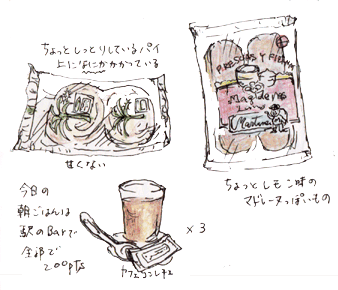 ちょっとしっとりしているパイ
上になにかかかっている
甘くない
ちょっとレモン味の
マドレーヌっぽいもの
今日の
朝ごはんは
駅のBarで
全部で
200pts
カフェコンレチェ
×3